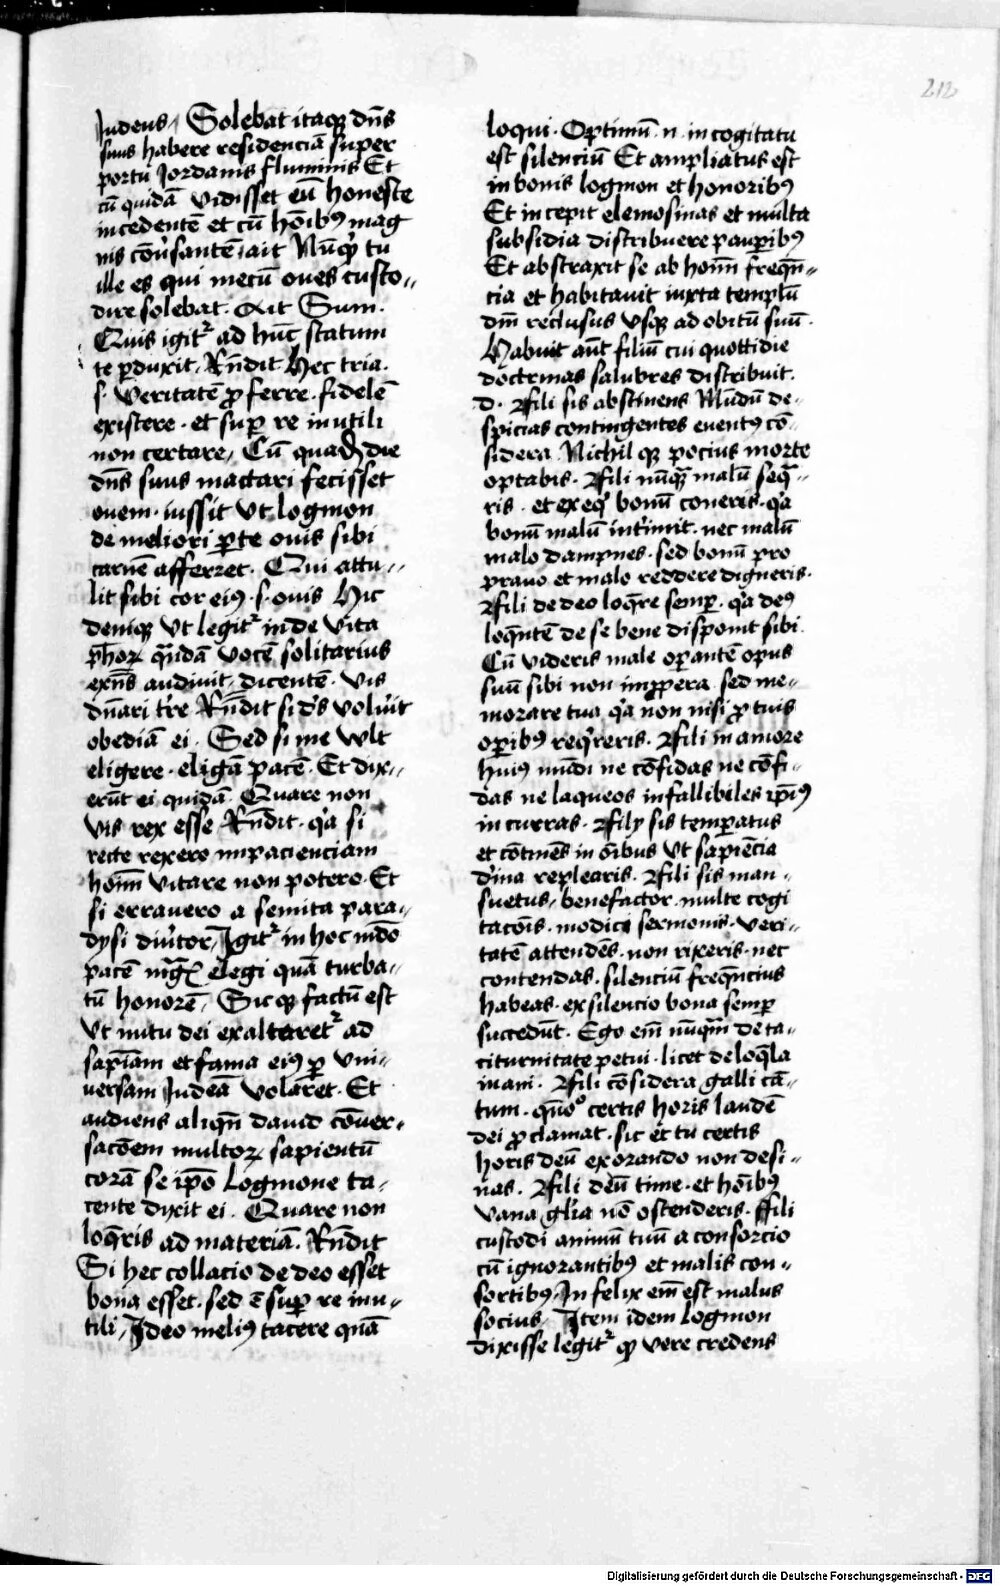 212
Judeus, Solebat itaqꝫ dn̄s
suus habere residenciā super
portū Jordanis fluminis Et
cū quidā vidisset eū honeste
incedentē et cū hōibꝰ mag
nis cōu̓santē ait Nūq̄d tu
ille es qui mecū oues custo-
dire solebat. Ait Sum.
Quis igitᷣ ad hūc statum
te ꝑduxit, Rn̄dit Hec tria.
s. veritatē ꝓferre. fidelē
existere. et suꝑ re inutili
non certare, Cū quadā die
dn̄s suus mactari fecisset
ouem. iussit vt logmon
de meliori ꝑte ouis sibi
carnē afferret. Qui attu-
lit sibi cor eiꝰ. s. ouis Hic
deniqꝫ vt legitᷣ in de vita
ph̄oꝝ quādā vocē solitarius
exn̄s audiuit dicentē. vis
dn̄ari tr̄e Rn̄dit si dn̄s voluīt
obediā ei. Sed si me vult
eligere. eligā pacē. Et dix-
erūt ei quidā. Quare non
vis rex esse Rn̄dit. qꝛ si
recte rexero impacienciam
hoīm vitare non potero. Et
si errauero a semita para-
dysi diu̓tor, Igitᷣ in hoc mūdo
pacē mgꝭ elegi quā turba-
tū honorē, Sicqꝫ factū est
vt nutu dei exaltaretᷣ ad
sapiām et fama eiꝰ ꝑ vni-
uersam Judeā volaret. Et
audiens aliqn̄ dauid cōuer-
sacōem multoꝝ sapientū
corā se ip̄o Logmone ta-
cente dixit ei. Quare non
loq̄ris ad materiā. Rn̄dit
Si hec collacio de deo esset
bona esset. sed ē suꝑ re inu-
tili, Ideo meliꝰ tacere quā
loqui. Optimū. n. in cogitatu
est silenciū Et ampliatus est
in bonis logmon et honoribꝰ
Et incepit elemosinas et multa
subsidia distribuere pauꝑibꝰ
Et abstraxit se ab hoīm freq̄n-
cia et habitauit iuxta templū
dn̄i reclusus vsqꝫ ad obitū suū.
Habuit aūt filiū cui quottidie
doctrinas salubres distribuit.
d. Fili sis abstinens Mūdū de-
spicias contingentes euentꝰ cō-
sidera Nichil qꝫ pocius morte
optabis. Fili nūquā malū seq̄-
ris. et exeq̄ bonū coneris. qꝛ
bonū malū intimit. nec malū
malo dampnes. sed bonū pro
prauo et malo reddere digneris.
Fili de deo loq̄re semꝑ. qꝛ deꝰ
loq̄ntē de se bene disponit sibi.
Cū videris male oꝑantē opus
suū sibi non impropera. sed me-
morare tua qꝛ non nisi ꝓ tuis
oꝑibꝰ req̄reris. Fili in amore
huiꝰ mūdi ne cōfidas ne cōfi-
das ne laqueos infallibiles ip̄iꝰ
incurras. Fili sis temꝑatus
et cōtinēs in oībus vt sapiēcia
diīna replearis. Fili sis man-
suetus, benefactor. multe cogi
tacōis. modici sermonis. veri-
tatē attendēs. non rixeris. nec
contendas. silenciū freq̄ncius
habeas. ex silencio bona semꝑ
succedūt. Ego em̄ nūquā de ta-
citurnitate petui. licet de loq̄la
inani. Fili cōsidera galli cā-
tum. quōº certis horis laudē
dei ꝓclamat. sic et tu certis
horis deū exorando non desi-
nas. Fili deū time. et hōibꝰ
vana glīa nō ostenderis. Fili
custodi animū tuū a consorcio
cū ignorantibꝰ et malis con-
sortibꝰ. Infelix em̄ est malus
socius, Item idem logmon
dixisse legitᷣ qꝫ vere credens
Digitalisierung gefördert durch die Deutsche Forschungsgemeinschaft - DFG